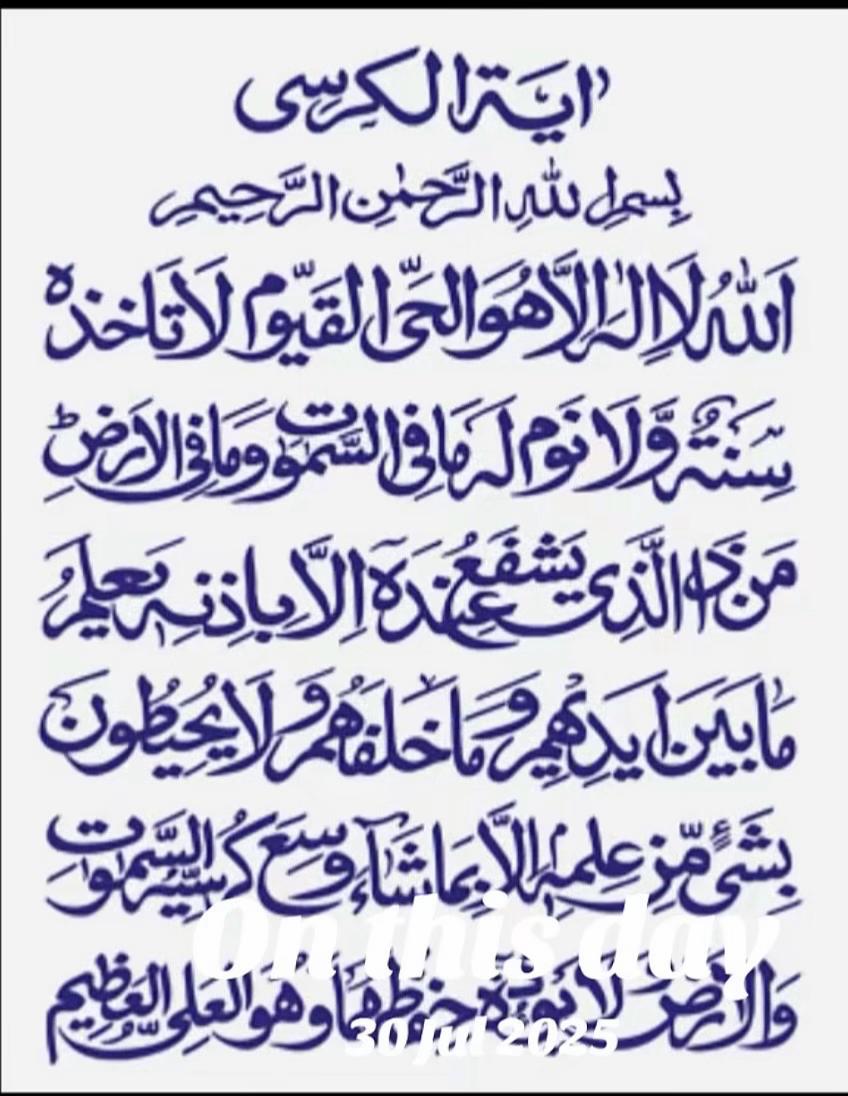 اٰیَةُ الکرسی
بِسمِ اللهِ الرَّحمٰنِ الرَّحِیمِ
اَللهُ لَا اِلٰهَ اِلَّا هُوَ الحَیُّ القَیُّوم لَا تَاخذهٗ
سِنَةٌ وَّلَا نَوم لَهٗ مَا فِی السَّمٰوٰت وَمَا فِی الاَرضِ ط
مَن ذَا الَّذِی یَشفَعُ عِندَهٗ اِلَّا بِاِذنِهٖ یَعلَمُ
مَا بَینَ اَیدِیهِم وَمَا خَلفَهُم وَلَا یُحِیطُونَ
بِشَیءٍ مِّن عِلمِهٖ اِلَّا بِمَا شَآءَ وَسِعَ کُرسِیُّهُ السَّمٰوٰت
وَالاَرضَ لَا یَؤُدُهٗ حِفظُهُمَا وَهُوَ العَلِیُّ العَظِیم
On this day
30 Jul 2025